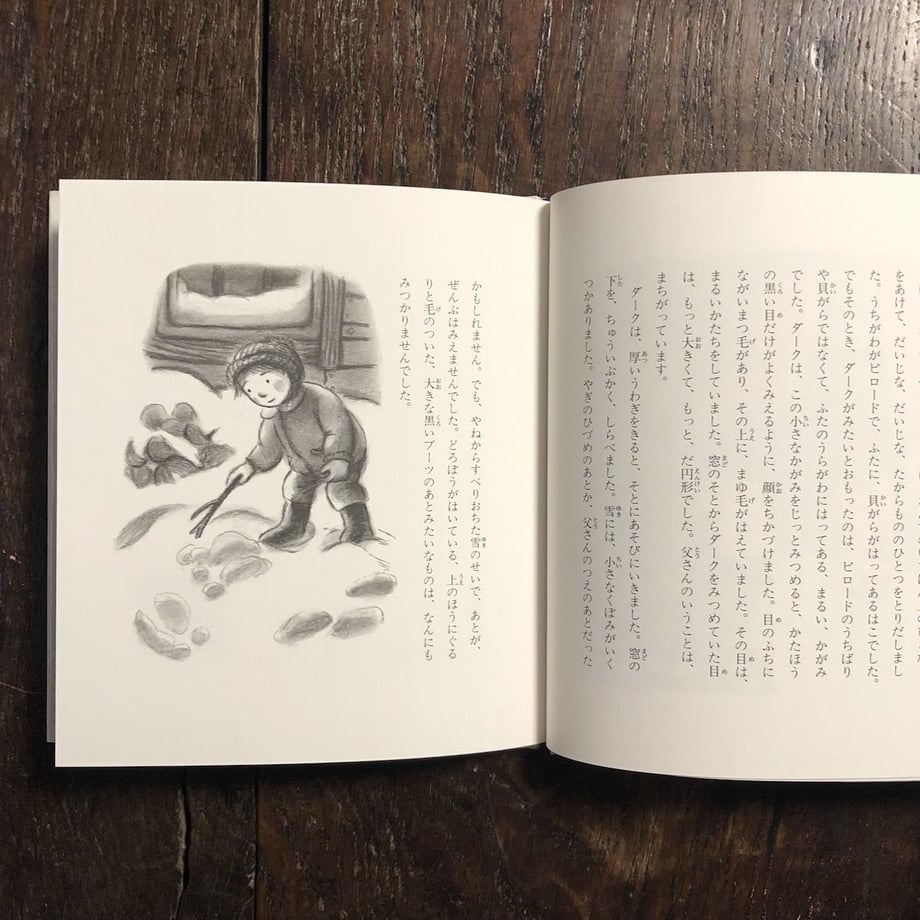 をあけて、だいじな、だいじな、たからもののひとつをとりだしまし
た。うちがわがビロードで、ふたに、貝がらがはってあるはこでした。
でもそのとき、ダークがみたいとおもったのは、ビロードのうちばり
や貝がらではなくて、ふたのうらがわにはってある、まるい、かがみ
でした。ダークは、この小さなかがみをじっとみつめると、かたほう
の黒い目だけがよくみえるように、顔をちかづけました。目のふちに
ながいまつ毛があり、その上に、まゆ毛がはえていました。その目は、
まるいかたちをしていました。窓のそとからダークをみつめていた目
は、もっと大きくて、もっと、だ円形でした。父さんのいうことは、
まちがっています。
ダークは、厚いうわぎをきると、そとにあそびにいきました。窓の
下を、ちゅういぶかく、しらべました。雪には、小さなくぼみがいく
つかありました。やぎのひづめのあとか、父さんのつえのあとだった
かもしれません。でも、やねからすべりおちた雪のせいで、あとが、
ぜんぶはみえませんでした。どろぼうがはいている、上のほうにぐる
りと毛のついた、大きな黒いブーツのあとみたいなものは、なんにも
みつかりませんでした。